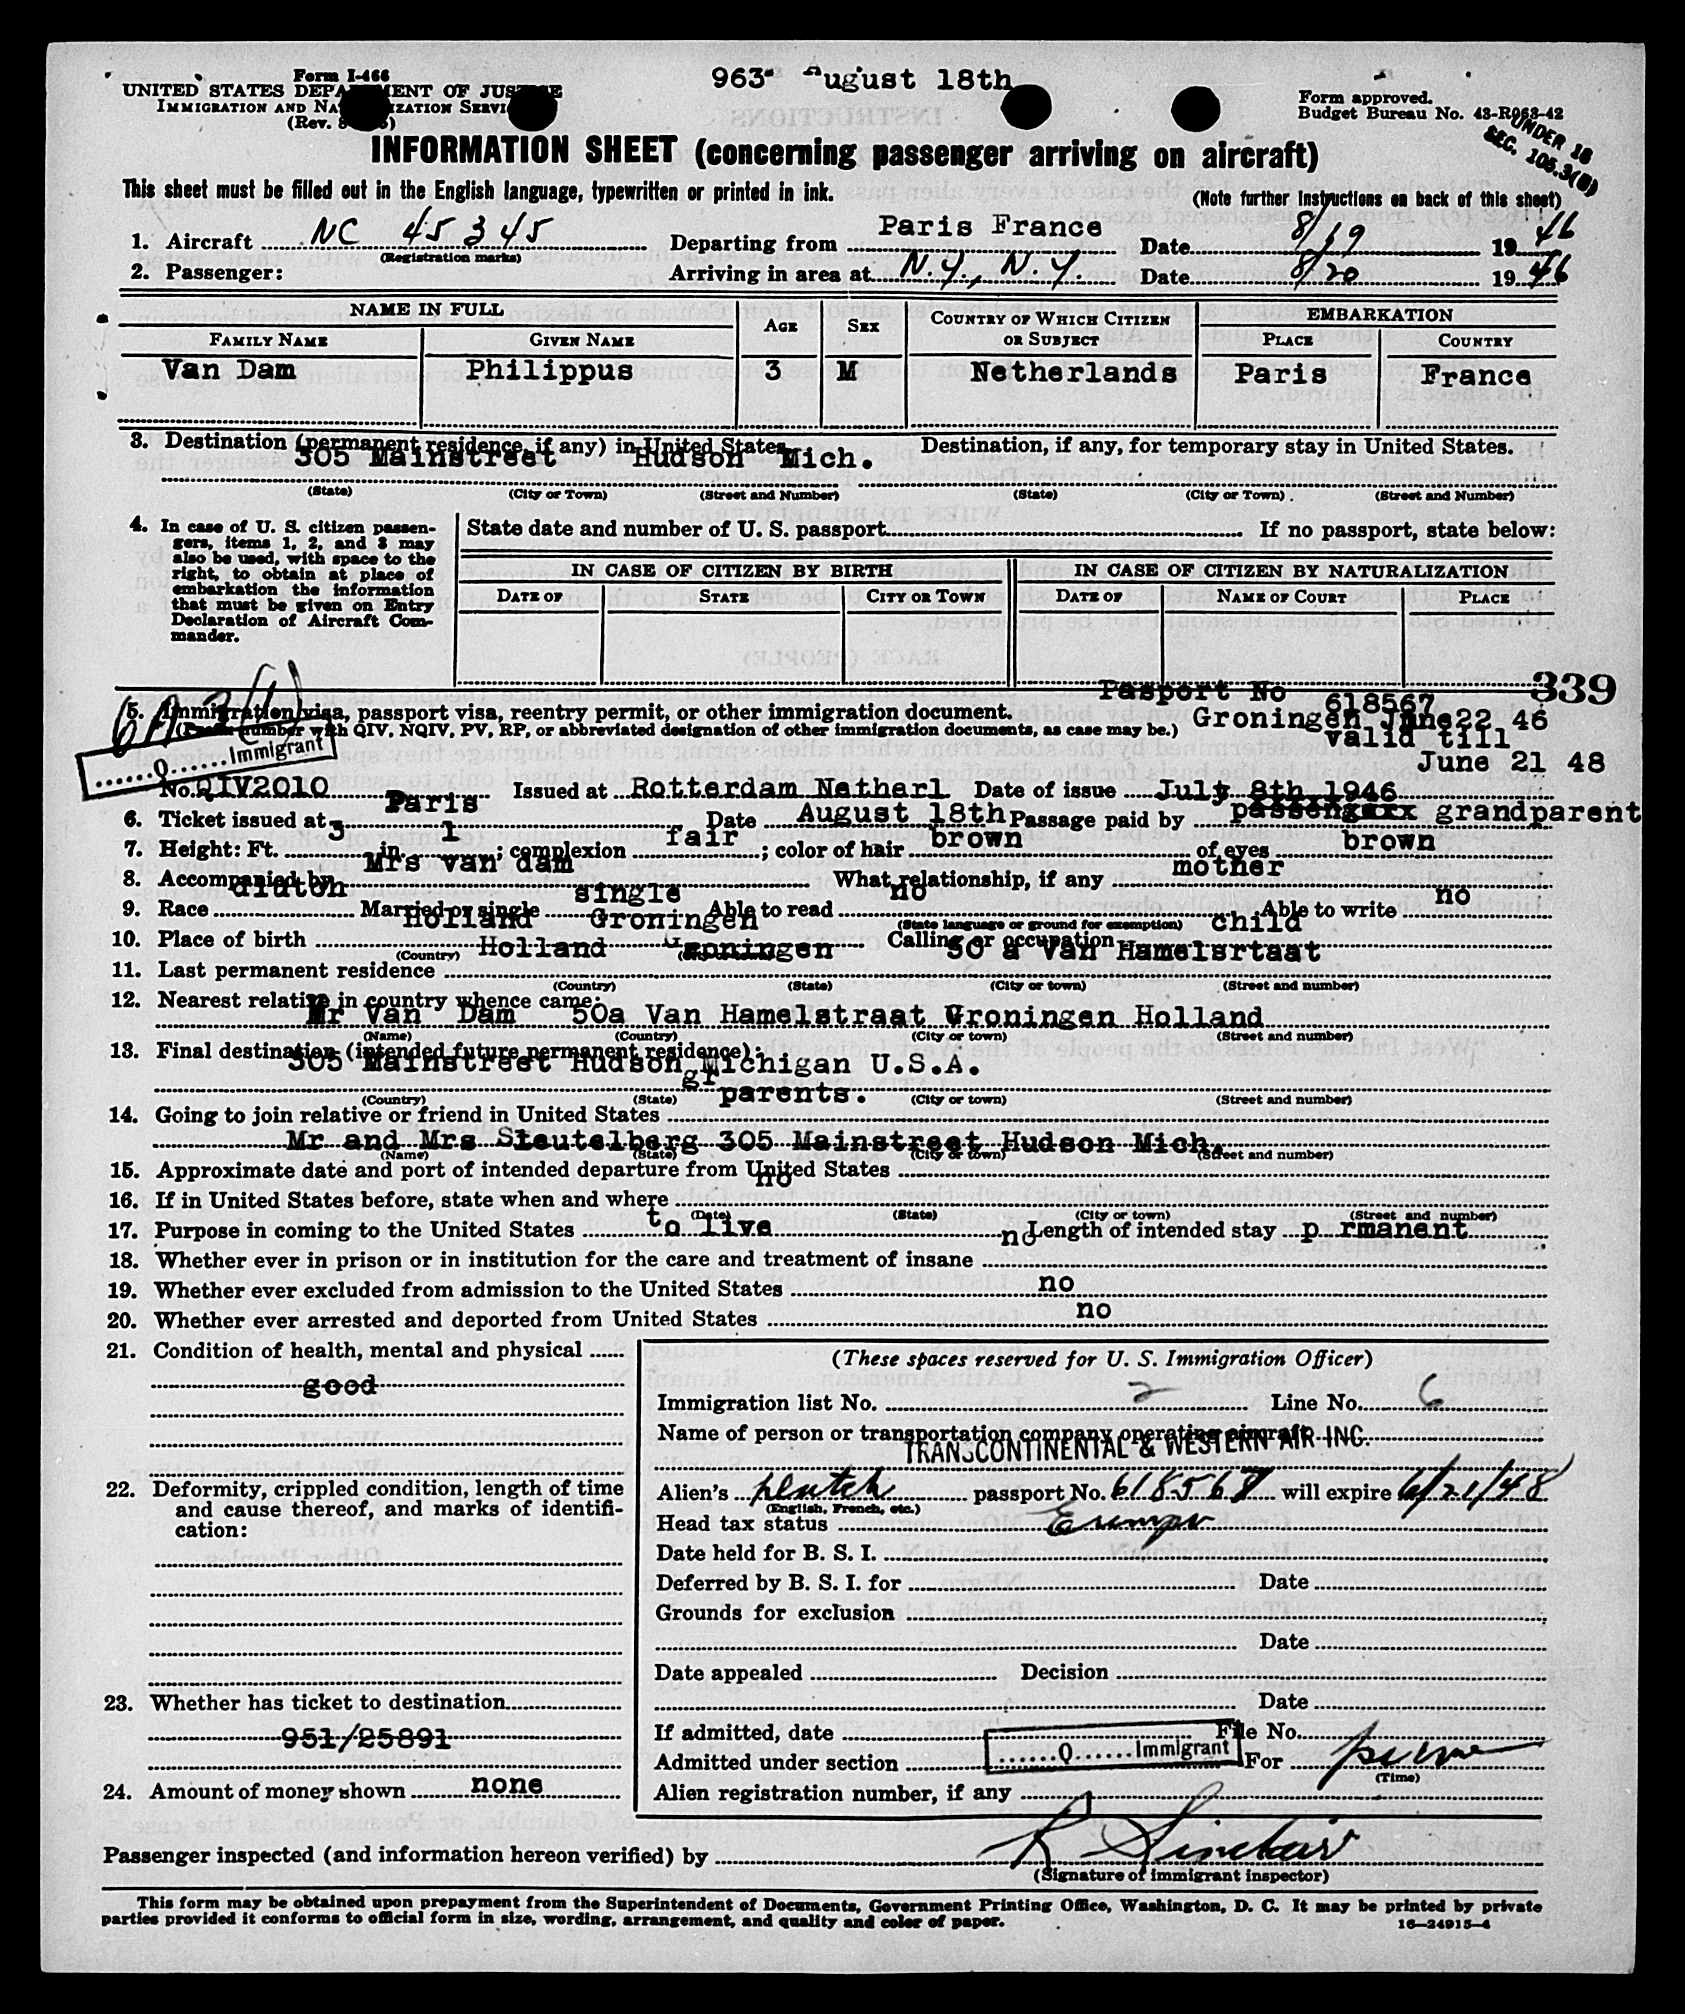 Form I-466
963 August 18th
UNITED STATES DEPARTMENT OF JUSTICE
IMMIGRATION AND NATURALIZATION SERVICE
(Rev.
Form approved.
Budget Bureau No. 43-R063-42
UNDER 16
SEC. 105.3(B)
INFORMATION SHEET (concerning passenger arriving on aircraft)
This sheet must be filled out in the English language, typewritten or printed in ink.
(Note further instructions on back of this sheet)
1. Aircraft NC 45345 Departing from Paris France Date 8/19 1946
(Registration marks)
2. Passenger: Arriving in area at N.Y., N.Y Date 8/20 1946
NAME IN FULL AGE SEX COUNTRY OF WHICH CITIZEN OR SUBJECT EMBARKATION
FAMILY NAME GIVEN NAME PLACE COUNTRY
Van Dam Philippus 3 M Netherlands Paris France
3. Destination (permanent residence, if any) in United States Destination, if any, for temporary stay in United States.
305 Mainstreet Hudson Mich.
(State) (City or Town) (Street and Number) (State) (City or Town) (Street and Number)
4. In case of U. S. citizen passen-
gers, items 1, 2, and 3 may
also be used, with space to the
right, to obtain at place of
embarkation the information
that must be given on Entry
Declaration of Aircraft Com-
mander.
State date and number of U. S. passport If no passport, state below:
IN CASE OF CITIZEN BY BIRTH IN CASE OF CITIZEN BY NATURALIZATION
DATE OF STATE CITY OR TOWN DATE OF NAME OF COURT PLACE
339
Pasport No 618567
5. Immigration visa, passport visa, reentry permit, or other immigration document.
Groningen June22 46
(Prefix number with QIV, NQIV, PV, RP, or abbreviated designation of other immigration documents, as case may be.)
valid till
June 21 48
Q Immigrant
No. QIV2010 Issued at Rotterdam Netherl Date of issue July 8th 1946
6. Ticket issued at Paris Date August 18th Passage paid by grandparent
7. Height: Ft. 3 in. 1; complexion fair; color of hair brown of eyes brown
8. Accompanied by Mrs van dam What relationship, if any mother
9. Race dlutch Married or single single Able to read no Able to write no
(State language or ground for exemption)
10. Place of birth Holland Groningen Calling or occupation child
(Country)
11. Last permanent residence Holland Groningen 50 a Van Hamelsrtaat
(Country) (State) (City or town) (Street and number)
12. Nearest relative in country whence came:
Mr Van Dam 50a Van Hamelstraat Groningen Holland
(Name) (Country) (City or town) (Street and number)
13. Final destination (intended future permanent residence):
305 Mainstreet Hudson Michigan U.S.A.
(Country) (State) (City or town) (Street and number)
14. Going to join relative or friend in United States gr parents.
Mr and Mrs Sleutelberg 305 Mainstreet Hudson Mich.
(Name) (State) (City or town) (Street and number)
15. Approximate date and port of intended departure from United States
16. If in United States before, state when and where no
(Date) (State) (City or town) (Street and number)
17. Purpose in coming to the United States to live Length of intended stay p rmanent
18. Whether ever in prison or in institution for the care and treatment of insane no
19. Whether ever excluded from admission to the United States no
20. Whether ever arrested and deported from United States no
21. Condition of health, mental and physical
good
22. Deformity, crippled condition, length of time
and cause thereof, and marks of identifi-
cation:
23. Whether has ticket to destination
951/25891
24. Amount of money shown none
(These spaces reserved for U. S. Immigration Officer)
Immigration list No. 2 Line No. 6
Name of person or transportation company operating aircraft
TRANSCONTINENTAL & WESTERN AIR INC.
Alien's Dutch passport No. 618567 will expire 6/21/48
(English, French, etc.)
Head tax status Exempt
Date held for B. S. I.
Deferred by B. S. I. for Date
Grounds for exclusion
Date
Date appealed Decision
Date
If admitted, date File No.
Admitted under section Q Immigrant For perm
(Time)
Alien registration number, if any
Passenger inspected (and information hereon verified) by R Sinclair
(Signature of immigrant inspector)
This form may be obtained upon prepayment from the Superintendent of Documents, Government Printing Office, Washington, D. C. It may be printed by private
parties provided it conforms to official form in size, wording, arrangement, and quality and color of paper.
16—24915-4